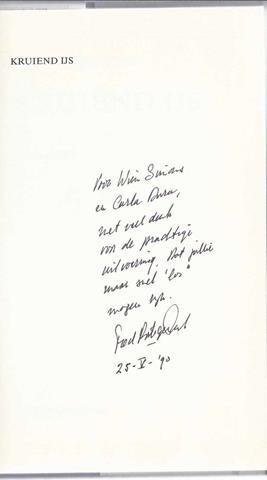 KRUIEND IJS
Voor Wim Simons
en Carla Dura,
met veel dank
voor de prachtige
uitvoering. Dat jullie
maar snel 'los'
mogen zijn.
25-V-'90